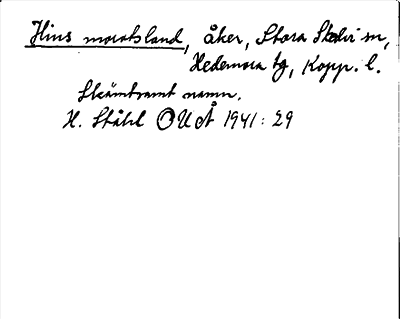 Hins moratsland, åker, Stora Skedvi sn,
Hedemora tg, Kopp. l.
Skämtsamt namn.
H. Ståhl OUÅ 1941: 29